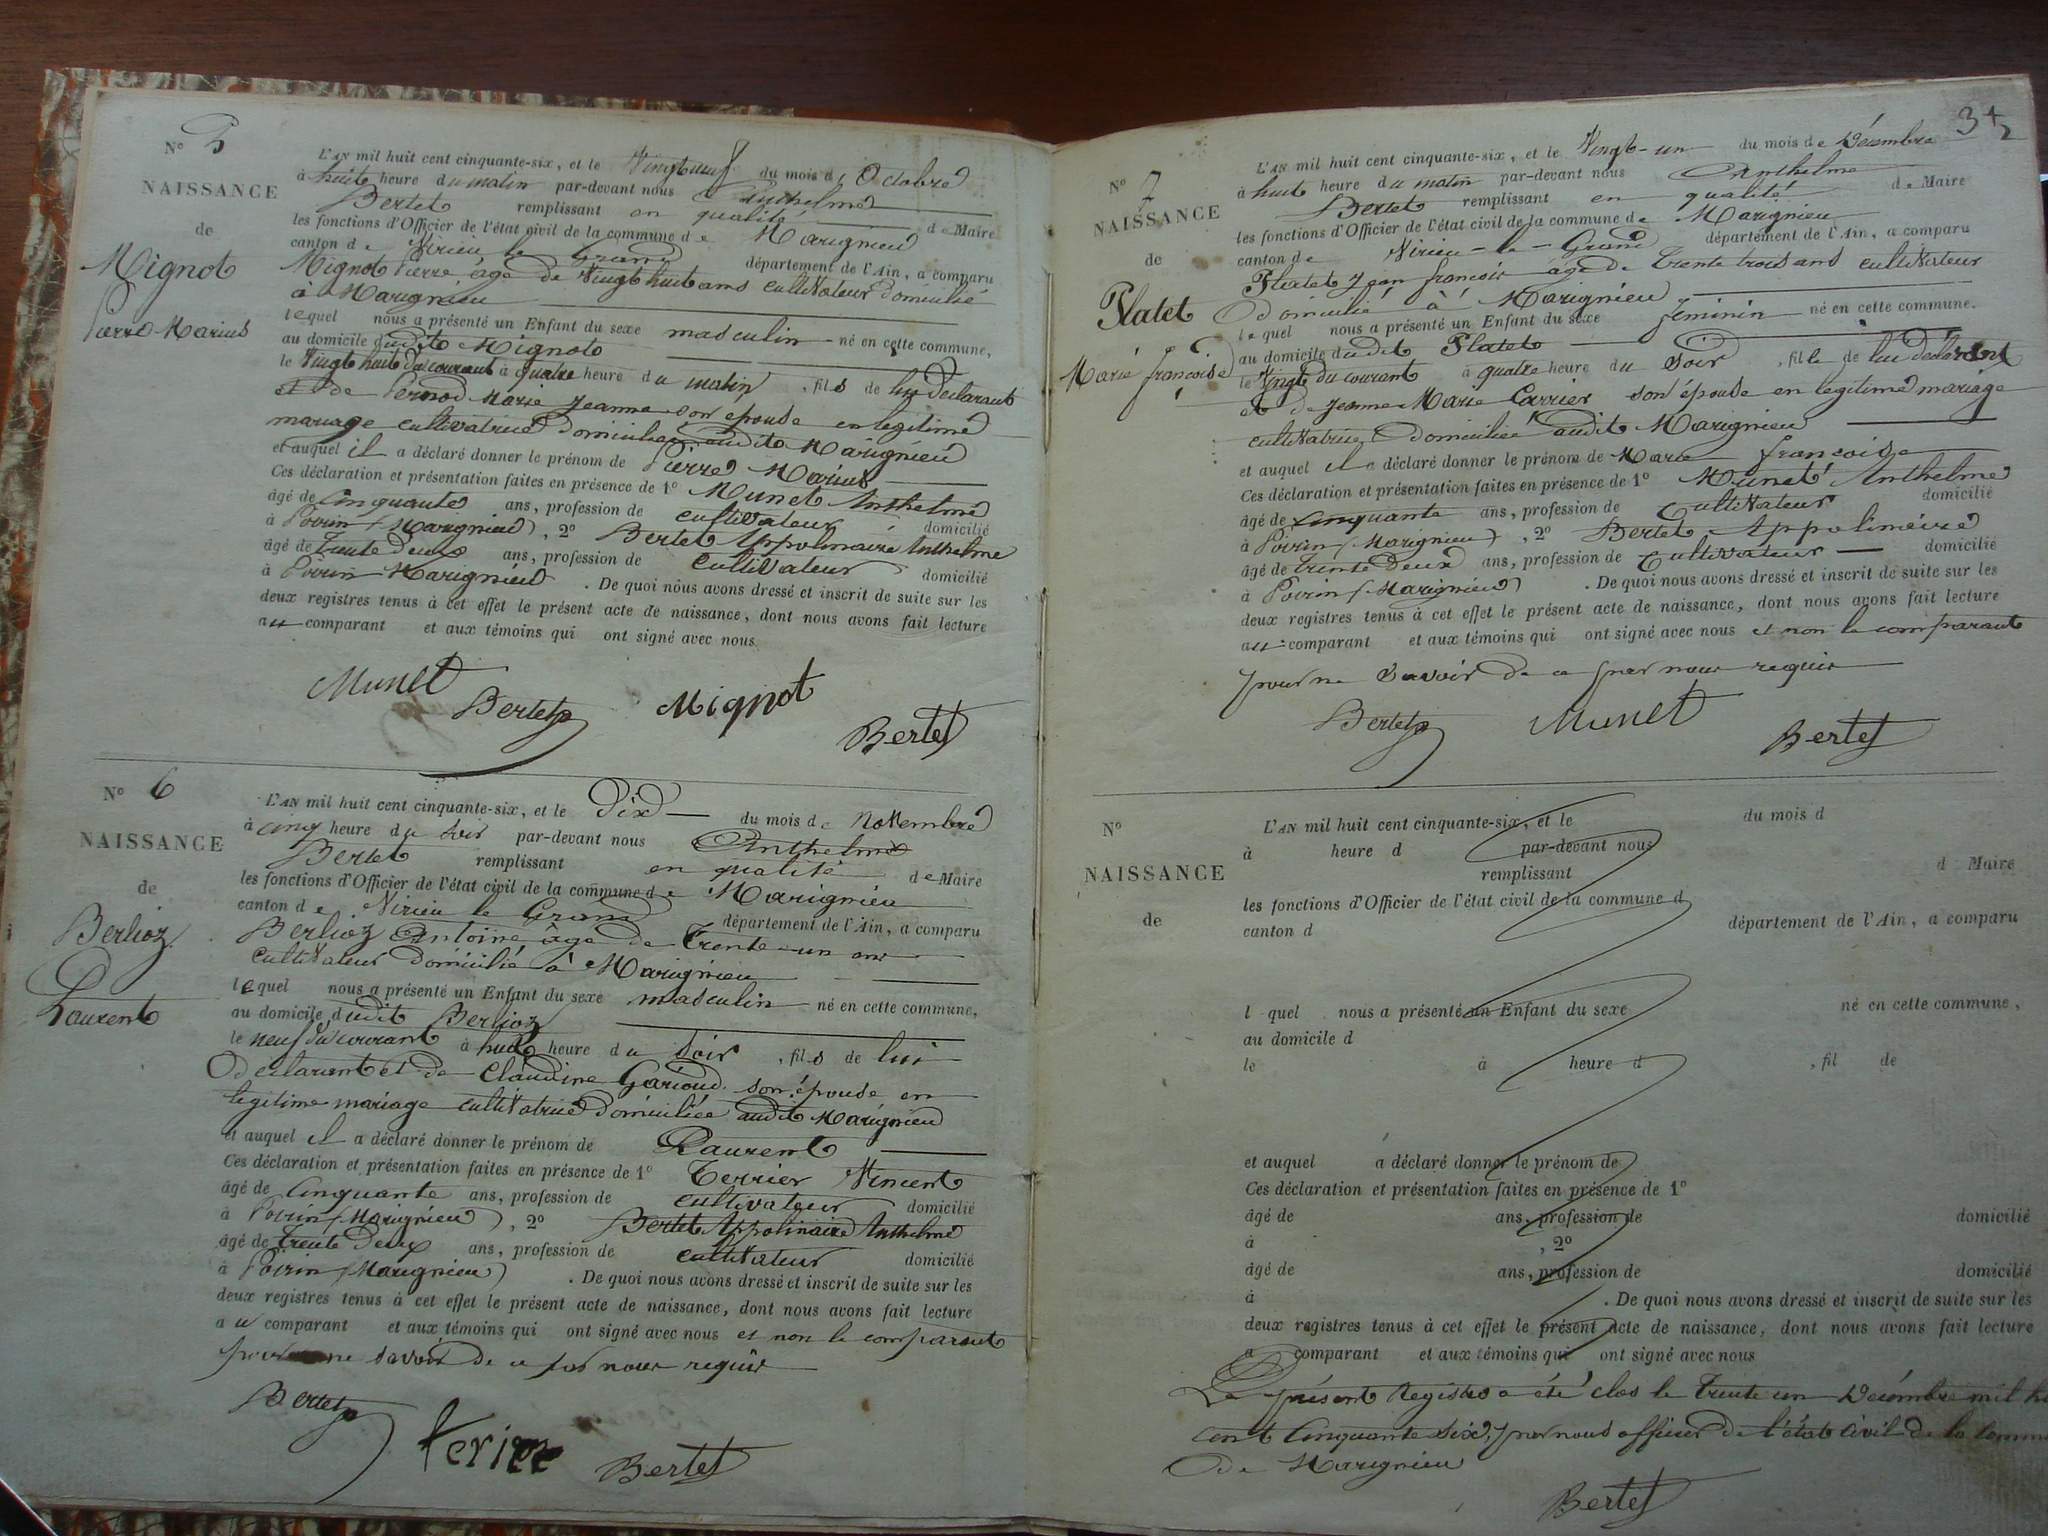 N° 5
NAISSANCE
de
Mignot
Pierre Marius
L'AN mil huit cent cinquante-six, et le Vingt neuf du mois d' Octobre
à huit heure du matin par-devant nous Anthelme
Bertet remplissant en qualité de Maire
les fonctions d'Officier de l'état civil de la commune de Marignieu
canton de Virieu le Grand département de l'Ain, a comparu
Mignot Pierre âgé de Vingt huit ans cultivateur domicilié
à Marignieu
lequel nous a présenté un Enfant du sexe masculin né en cette commune,
au domicile dudit Mignot
le Vingt huit du courant à quatre heure du matin, fils de lui déclarant
et de Pernod Marie Jeanne son épouse en légitime
mariage cultivatrice domiciliée audit Marignieu
et auquel il a déclaré donner le prénom de Pierre Marius
Ces déclaration et présentation faites en présence de 1° Munet Anthelme
âgé de cinquante ans, profession de cultivateur domicilié
à Poirin (Marignieu), 2° Bertet Appolinaire Anthelme
âgé de trente deux ans, profession de cultivateur domicilié
à Poirin Marignieu. De quoi nous avons dressé et inscrit de suite sur les
deux registres tenus à cet effet le présent acte de naissance, dont nous avons fait lecture
au comparant et aux témoins qui ont signé avec nous.
Munet Bertet Mignot Bertet
N° 6
NAISSANCE
de
Berlioz
Laurent
L'AN mil huit cent cinquante-six, et le Dix du mois de Novembre
à cinq heure du soir par-devant nous Anthelme
Bertet remplissant en qualité de Maire
les fonctions d'Officier de l'état civil de la commune de Marignieu
canton de Virieu le Grand département de l'Ain, a comparu
Berlioz Antoine âgé de Trente-un ans
cultivateur domicilié à Marignieu
lequel nous a présenté un Enfant du sexe masculin né en cette commune,
au domicile dudit Berlioz
le neuf du courant à huit heure du soir, fils de lui
déclarant et de Claudine Garioud son épouse en
légitime mariage cultivatrice domiciliée audit Marignieu
et auquel il a déclaré donner le prénom de Laurent
Ces déclaration et présentation faites en présence de 1° Terrier Vincent
âgé de Cinquante ans, profession de cultivateur domicilié
à Poirin (Marignieu), 2° Bertet Appolinaire Anthelme
âgé de trente deux ans, profession de cultivateur domicilié
à Poirin (Marignieu). De quoi nous avons dressé et inscrit de suite sur les
deux registres tenus à cet effet le présent acte de naissance, dont nous avons fait lecture
au comparant et aux témoins qui ont signé avec nous et non le comparant
pour ne savoir de ce par nous requis
Bertet Bertet
34
N° 7
NAISSANCE
de
Platet
Marie françoise
L'AN mil huit cent cinquante-six, et le Vingt-un du mois de Décembre
à huit heure du matin par-devant nous Anthelme
Bertet remplissant en qualité de Maire
les fonctions d'Officier de l'état civil de la commune de Marignieu
canton de Virieu-le-Grand département de l'Ain, a comparu
Platet Jean françois âgé de trente trois ans cultivateur
domicilié à Marignieu
lequel nous a présenté un Enfant du sexe feminin né en cette commune.
au domicile dudit Platet
le Vingt du courant à quatre heure du soir, fille de lui déclarant
et de Jeanne Marie Carrier son épouse en légitime mariage
cultivatrice domiciliée audit Marignieu
et auquel il a déclaré donner le prénom de Marie françoise
Ces déclaration et présentation faites en présence de 1° Munet Anthelme
âgé de cinquante ans, profession de Cultivateur domicilié
à Poirin (Marignieu), 2° Bertet Appolinaire
âgé de trente deux ans, profession de cultivateur domicilié
à Poirin (Marignieu). De quoi nous avons dressé et inscrit de suite sur les
deux registres tenus à cet effet le présent acte de naissance, dont nous avons fait lecture
au comparant et aux témoins qui ont signé avec nous et non le comparant
pour ne savoir de ce par nous requis
Bertet Munet Bertet
N°
NAISSANCE
de
L'AN mil huit cent cinquante-six, et le du mois d
à heure d par-devant nous
remplissant d Maire
les fonctions d'Officier de l'état civil de la commune d
canton d département de l'Ain, a comparu
l quel nous a présenté un Enfant du sexe né en cette commune,
au domicile d
le à heure d , fil de
et auquel a déclaré donner le prénom de
Ces déclaration et présentation faites en présence de 1°
âgé de ans, profession de domicilié
à , 2°
âgé de ans, profession de domicilié
à . De quoi nous avons dressé et inscrit de suite sur les
deux registres tenus à cet effet le présent acte de naissance, dont nous avons fait lecture
a comparant et aux témoins qui ont signé avec nous
Le présent Registre a été clos le trente un Décembre mil
cent Cinquante six, par nous officier de l'état Civil de la
de Marignieu
Bertet